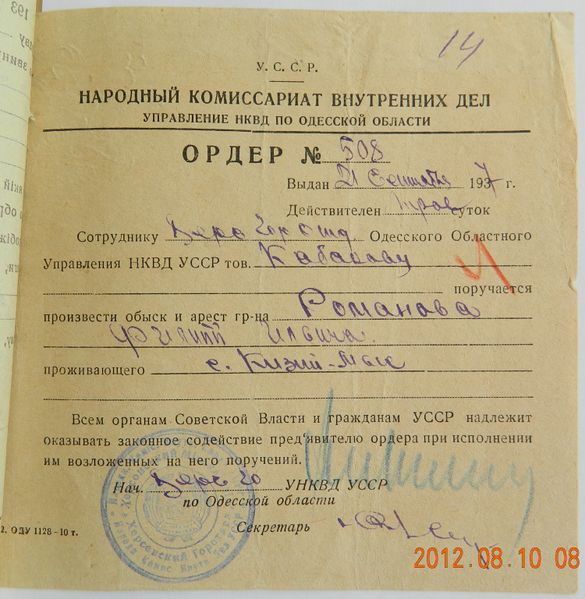 14
У. С. С. Р.
НАРОДНЫЙ КОМИССАРИАТ ВНУТРЕННИХ ДЕЛ
УПРАВЛЕНИЕ НКВД ПО ОДЕССКОЙ ОБЛАСТИ
ОРДЕР № 508
Выдан 21 1937 г.
Действителен суток
Сотруднику Одесского Областного
Управления НКВД УССР тов. Кабанову
поручается
произвести обыск и арест гр-на Романова
Филипп Ильича
проживающего с. Кизий-Мыс
Всем органам Советской Власти и гражданам УССР надлежит
оказывать законное содействие пред'явителю ордера при исполнении
им возложенных на него поручений.
Нач. УНКВД УССР
по Одесской области
Секретарь
2. ОДУ 1128-10 т.
2012.08.10 08